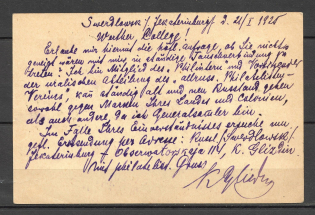 Swerdlowsk / Jekaterinburg d. 21/I 1926
Werther College!
Erlaube mir hiermit die höfl. Anfrage, ob Sie nicht
geneigt wären mit mir in ständige Tauschverbindung zu
treten? Ich bin Mitglied des Philintern und Vorsitzender
der uralischen Abteilung des allruss. Philatelisten-
Vereins, kann ständig alt und neu Russland geben
sowohl gegen Marken Ihres Landes und Colonien,
als auch andere, da ich Generalsammler bin.
Im Falle Ihres Einverständnisses ersuche um
gefl. Erstsendung per Adresse: Russl. Swerdlowsk/
Jekaterinburg, Observatorskaja K.
Mit philatelist. Gruss